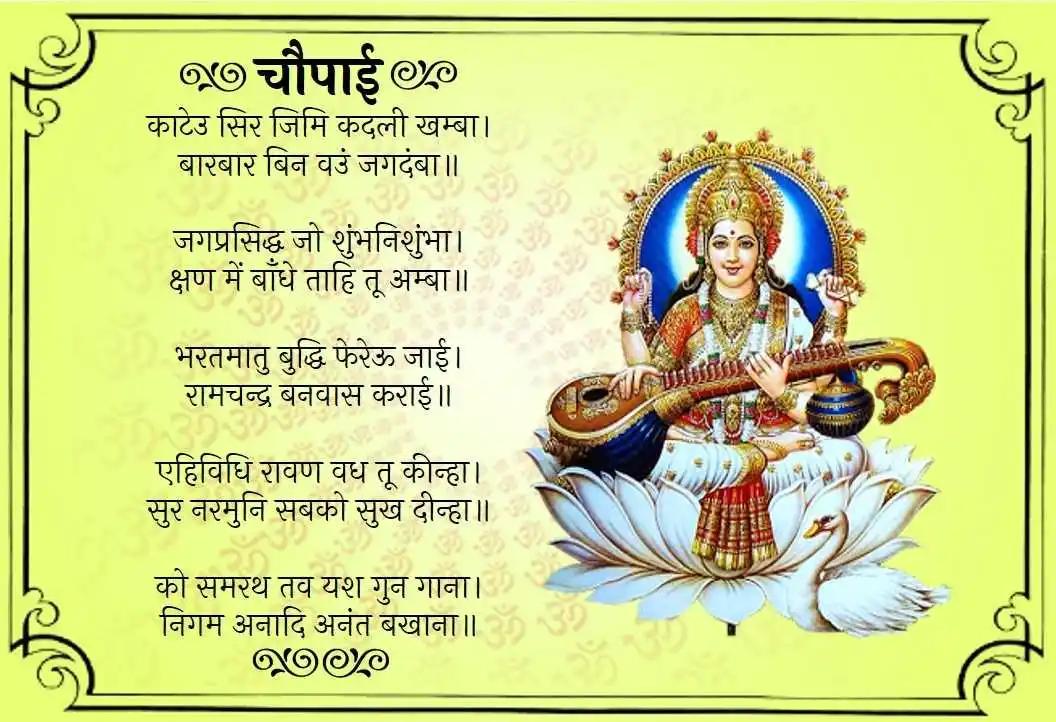 चौपाई
काटेउ सिर जिमि कदली खम्बा।
बारबार बिन वउं जगदंबा॥
जगप्रसिद्ध जो शुंभनिशुंभा।
क्षण में बाँधे ताहि तू अम्बा॥
भरतमातु बुद्धि फेरेऊ जाई।
रामचन्द्र बनवास कराई॥
एहिविधि रावण वध तू कीन्हा।
सुर नरमुनि सबको सुख दीन्हा॥
को समरथ तव यश गुन गाना।
निगम अनादि अनंत बखाना॥